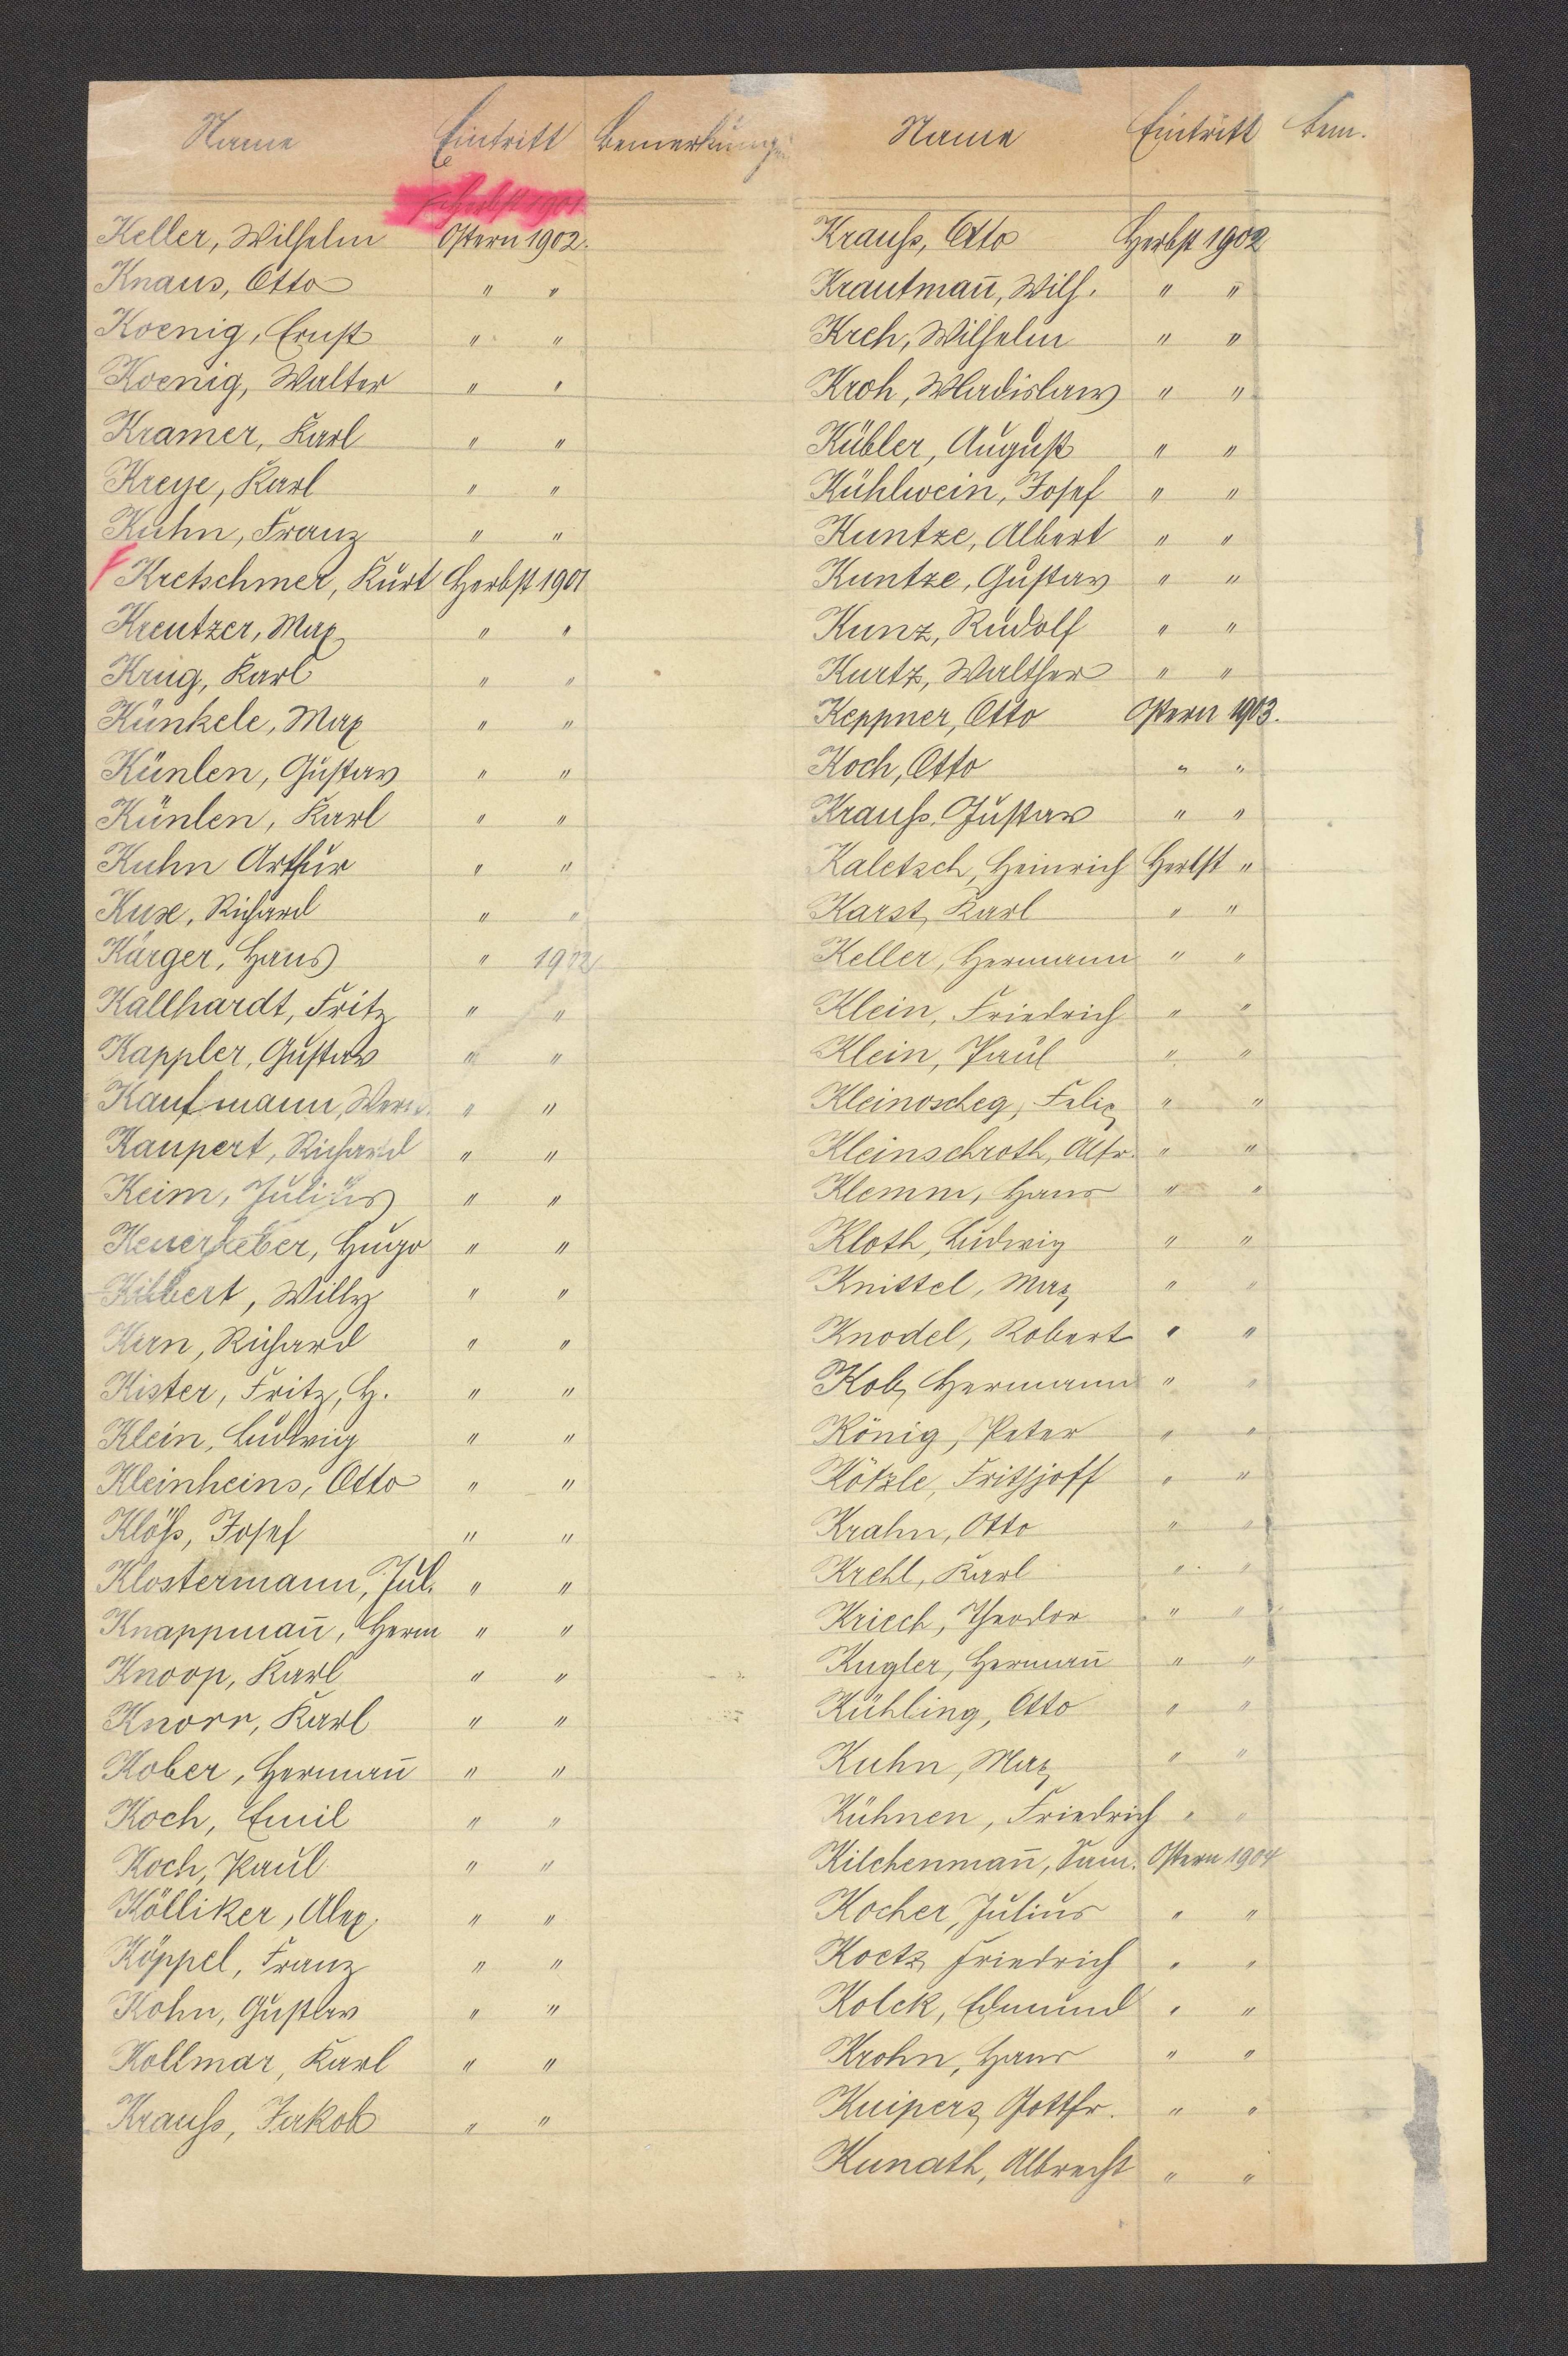 Name Eintritt Bemerkungen
Herbst 1901
Keller, Wilhelm Ostern 1902.
Knaus, Otto " "
Koenig, Ernst " "
Koenig, Walter " "
Kramer, Karl " "
Kreye, Karl " "
Kuhn, Franz " "
Kretschmer, Kurt Herbst 1901
Kreutzer, Max " "
Krug, Karl " "
Künkele, Max " "
Künlen, Gustav " "
Künlen, Karl " "
Kuhn Arthur " "
Kuxe, Richard " "
Kärger, Hans " 1902
Kallhardt, Fritz " "
Kappler, Gustav " "
Kaufmann, Wern. " "
Kaupert, Richard " "
Keim, Julius " "
Keuerleber, Hugo " "
Kilbert, Willy " "
Kirn, Richard " "
Kister, Fritz, H. " "
Klein, Ludwig " "
Kleinheins, Otto " "
Klöß, Josef " "
Klostermann, Jul. " "
Knappmañ, Herm " "
Knoop, Karl " "
Knorr, Karl " "
Kober, Hermañ " "
Koch, Emil " "
Koch, Paul " "
Kölliker, Alex. " "
Köppel, Franz " "
Kohn, Gustav " "
Kollmar, Karl " "
Krauß, Jakob " "
Name Eintritt Bem.
Krauß, Otto Herbst 1902
Krautmañ, Wilh. " "
Kreh, Wilhelm " "
Kroh, Wladislaw " "
Kübler, August " "
Kühlwein, Josef " "
Kuntze, Albert " "
Kuntze, Gustav " "
Kunz, Rudolf " "
Kurtz, Walther " "
Keppner, Otto Ostern 1903.
Koch, Otto " "
Krauß, Gustav " "
Kaletsch, Heinrich Herbst "
Karst, Karl " "
Keller, Hermann " "
Klein, Friedrich " "
Klein, Paul " "
Kleinoscheg, Felix " "
Kleinschroth, Alfr. " "
Klemm, Hans " "
Kloth, Ludwig " "
Knittel, Max " "
Knodel, Robert " "
Kob, Hermann " "
König, Peter " "
Kötzle, Frithjoff " "
Krahn, Otto " "
Krehl, Karl " "
Kriech, Theodor " "
Kugler, Hermañ " "
Kühling, Otto " "
Kuhn, Max " "
Kühnen, Friedrich " "
Kilchenmañ, Sam. Ostern 1904
Kocher, Julius " "
Koetz, Friedrich " "
Kolck, Edmund " "
Krohn, Hans " "
Kuipers, Gottfr. " "
Kunath, Albrecht " "